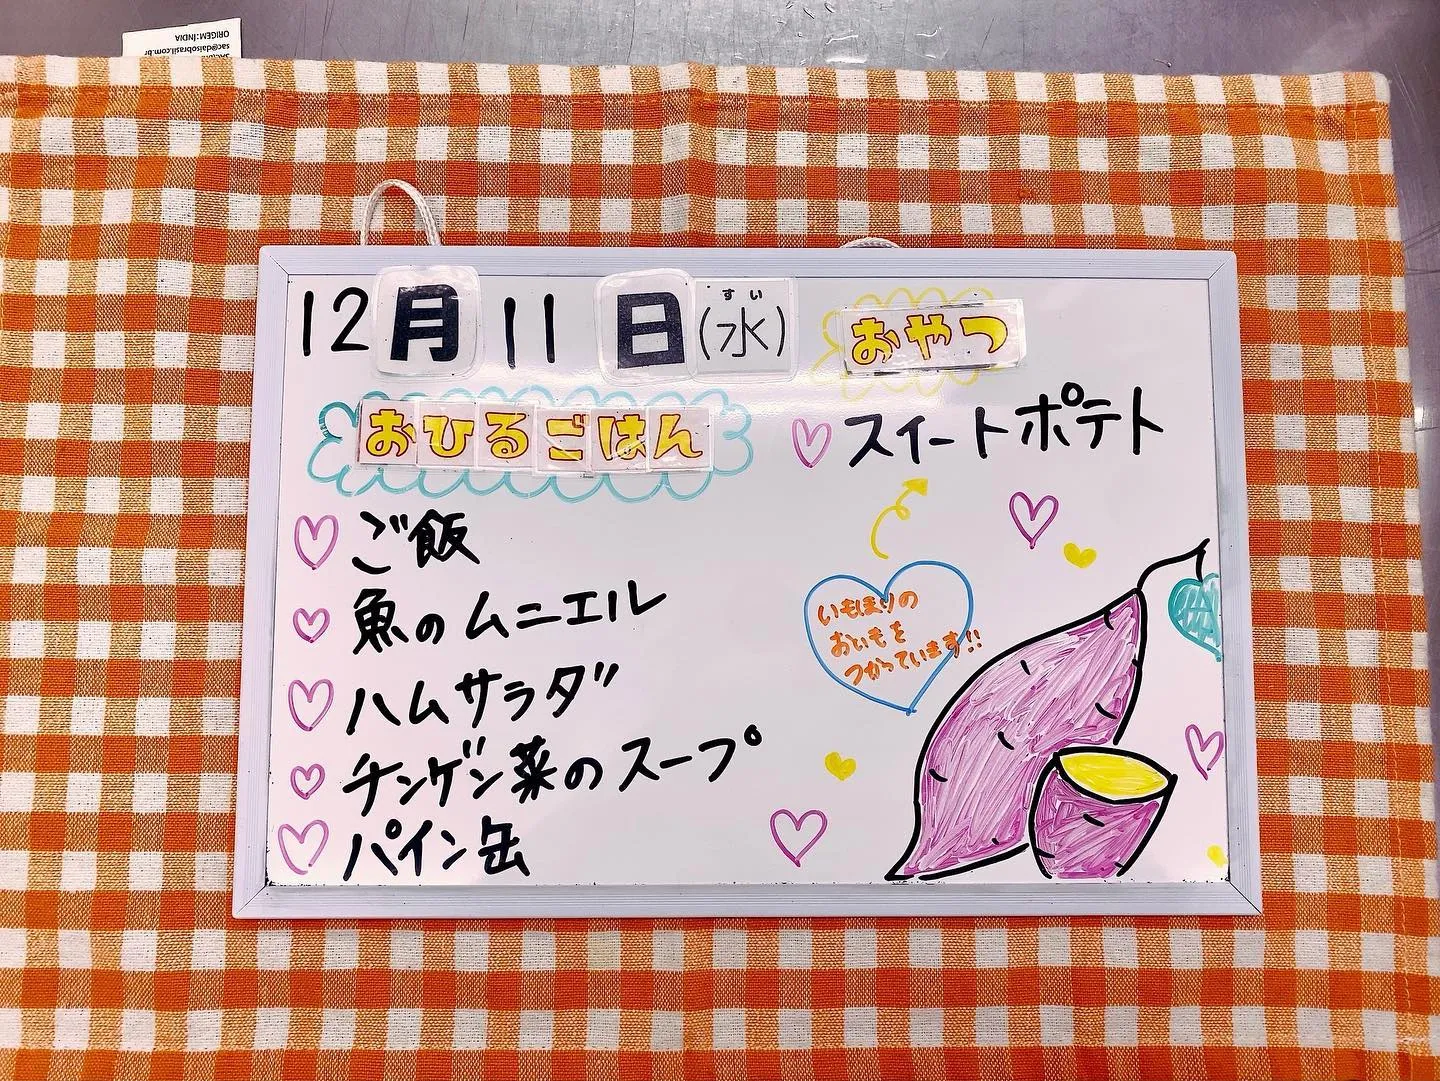 SAC:
sac@daisobrasil.com.br
ORIGEM: INDIA
12月11日(水)
すい
おやつ
スイートポテト
いもほりの
おいもを
つかっています!!
おひるごはん
ご飯
魚のムニエル
ハムサラダ
チンゲン菜のスープ
パイン缶